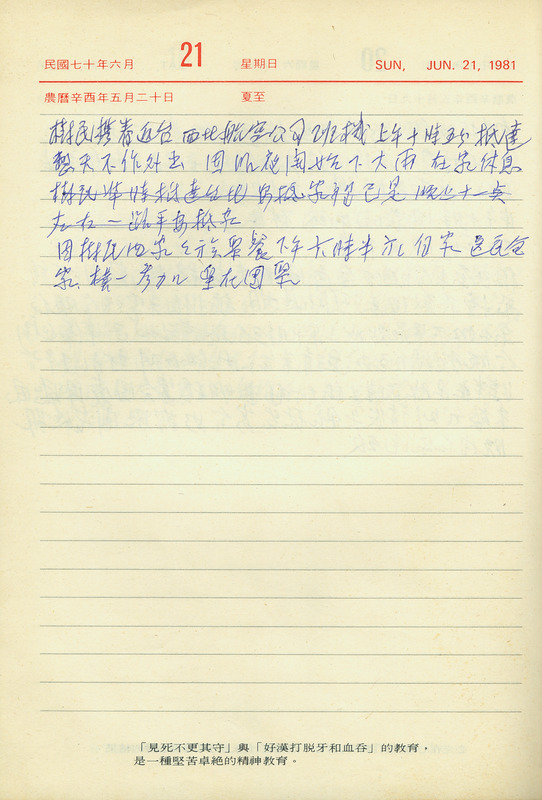 民國七十年六月 21 星期日 SUN, JUN. 21, 1981
農曆辛酉年五月二十日 夏至
樹民携眷返台 西北航空公司班機上午十時五分抵達
整天不作外出 因昨夜開始下大雨 在家休息
樹民準時抵達台北 安抵家門已是晚上十一点
左右 一路平安抵家
因樹民回家 早餐 下午六時半 家 全
家 參加 團聚
「見死不更其守」與「好漢打脫牙和血吞」的教育,
是一種堅苦卓絕的精神教育。